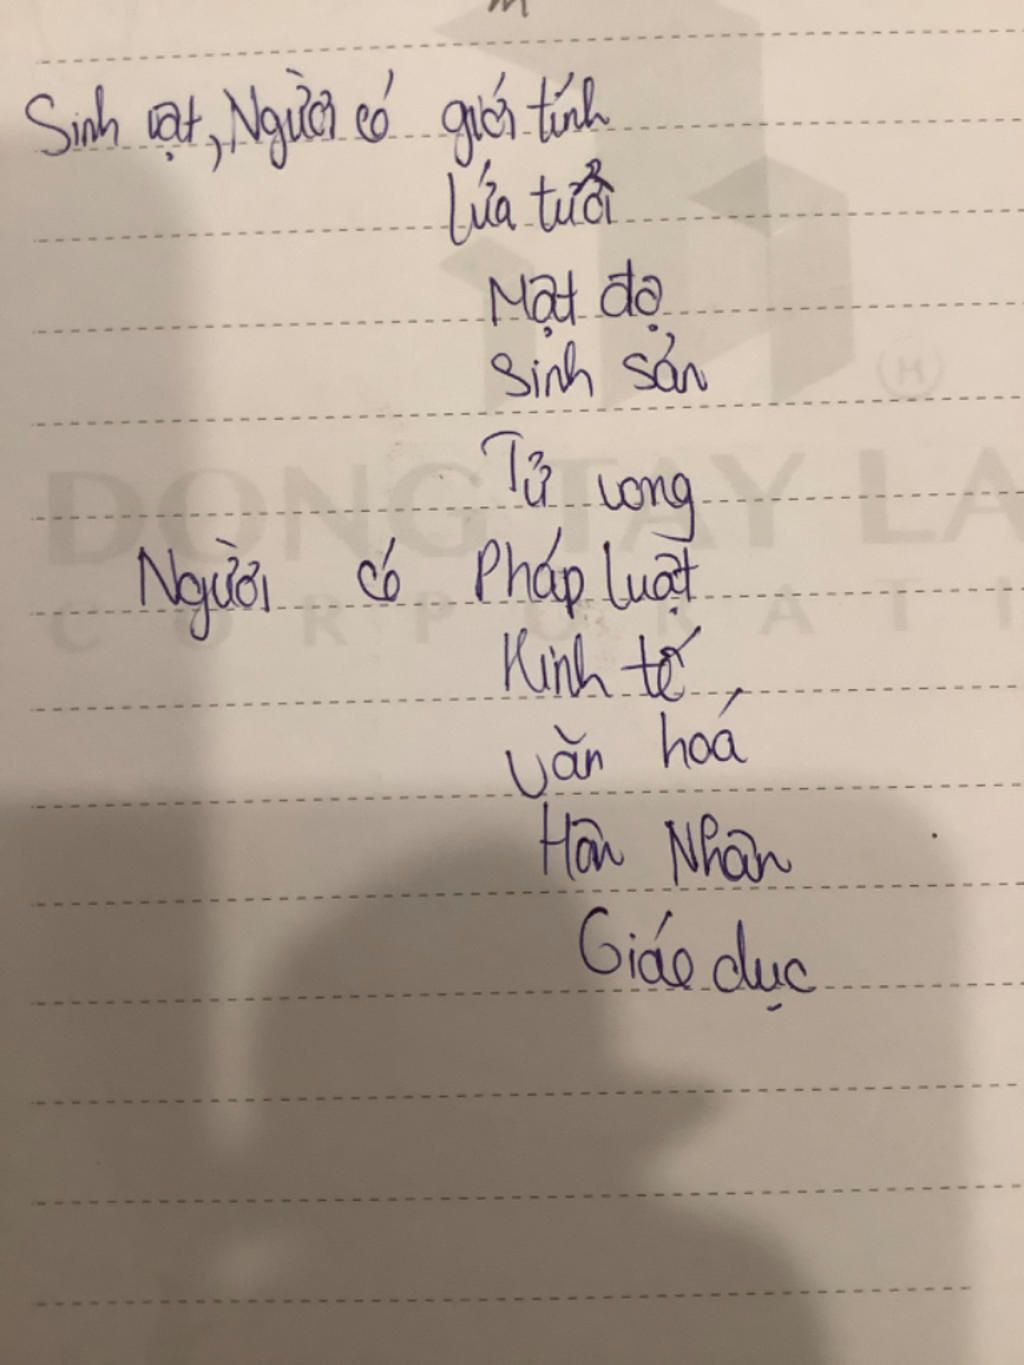 Sinh vật, Người có giới tính
Lứa tuổi
Mật độ
Sinh sản
Tử vong
DONG TAY LA
Người có Pháp luật
CORPORATI
Kinh tế
Văn hoá
Hôn Nhân
Giáo dục